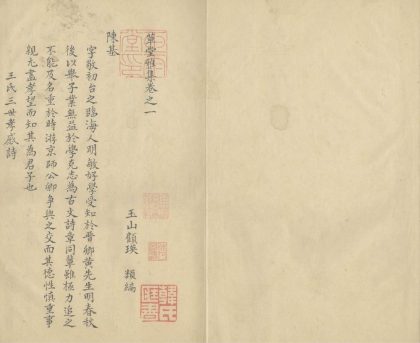 草堂雅集卷之一
玉山顧瑛類編
陳基
字敬初台之臨海人明敏好學受知於晉卿黃先生明春秋
後以舉子業無益於學克志為古文詩章同輩雖極力追之
不能及名重於時游京師公卿爭與之交而其德性慎重事
親尤盡孝望而知其為君子也
王氏三世孝感詩